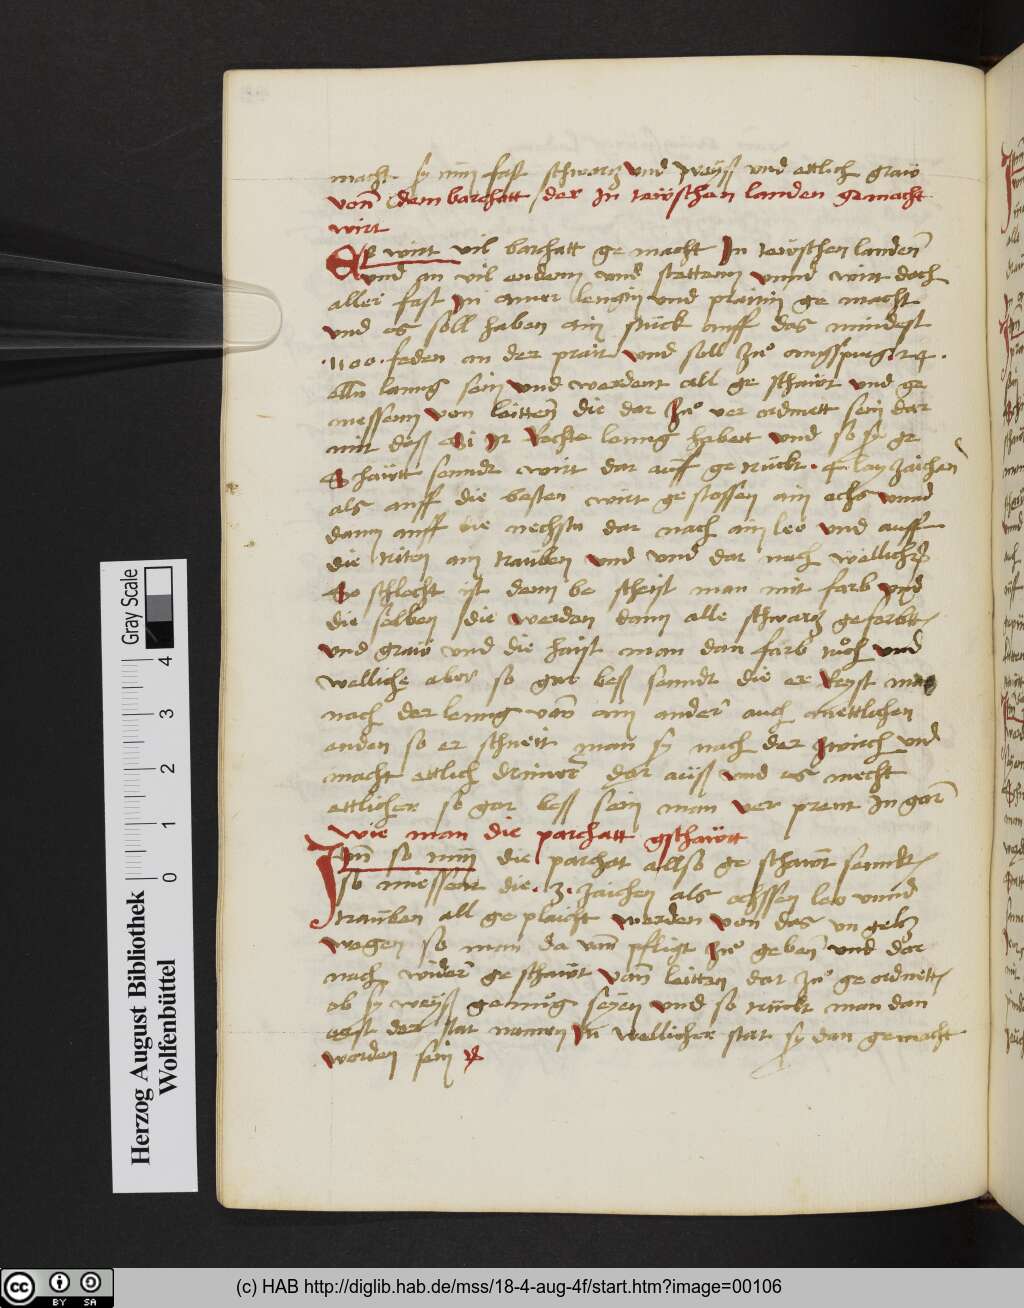 macht sy nun fast schwarz vnd weyß vnd ettlich graw
vonn dem barchatt der In teẅschen landen gemacht
wirt
Es wirt vil barchatt ge macht In teẅschen landenn
vnd an vil enden vnd stettenn vnnd wirt doch
aller fast In ainer lengin vnd praittin ge macht
vnd es soll haben ain stück auff das mindest
·1100· feden an der prait vnd soll Zuo augspurg ·24·
elln lanng sein vnd werdent all ge schawt vnd ge
messenn von leẅtten die dar Zuo ver ordnett sein dar
mit das Si Ir Rechte leung habent vnd so sy ge
Schaẅtt senndt wirt dar auff ge trückt · 4 lay Zaichen
als auff die besten wirt gestossen ain ochs vnnd
dann auff die nechstn dar nach ain leo vnd auff
die triten ain trauben vnd vnd dar nach wellichs
So schlecht ist dem be scheist man mit farb vnd
die selben die werden dann alle schwarz geferbtt
vnd graẅ vnd die haist man dan farb tuoch vnd
welliche aber so gar beß senndt die er Reyst man
nach der leng von ain ander auch anettlichen
enden so er schneit man sy nach der Zwirch vnd
macht ettlich trimer dar auß vnd es mecht
ettlicher so gar beß sein man ver prent In gar
wie man die parchatt gschaẅtt
Item so nun die parchat allso ge schawt senndt
so miessent die ·3· Zaichen als ochssen leo vnnd
trauben all ge plaicht werden von das vn gelt
wegen so man da von pfligt Zuo geben vnd dar
nach wider ge schaẅt vonn leẅtten dar Zuo ge ordnett
ob sy weyß genuog seyen vnd so trückt man dan
erst der stat namen In wellicher stat sy dan gemacht
worden sein
Gray Scale
0 1 2 3 4
Herzog August Bibliothek
Wolfenbüttel
cc BY SA
(c) HAB http://diglib.hab.de/mss/18-4-aug-4f/start.htm?image=00106